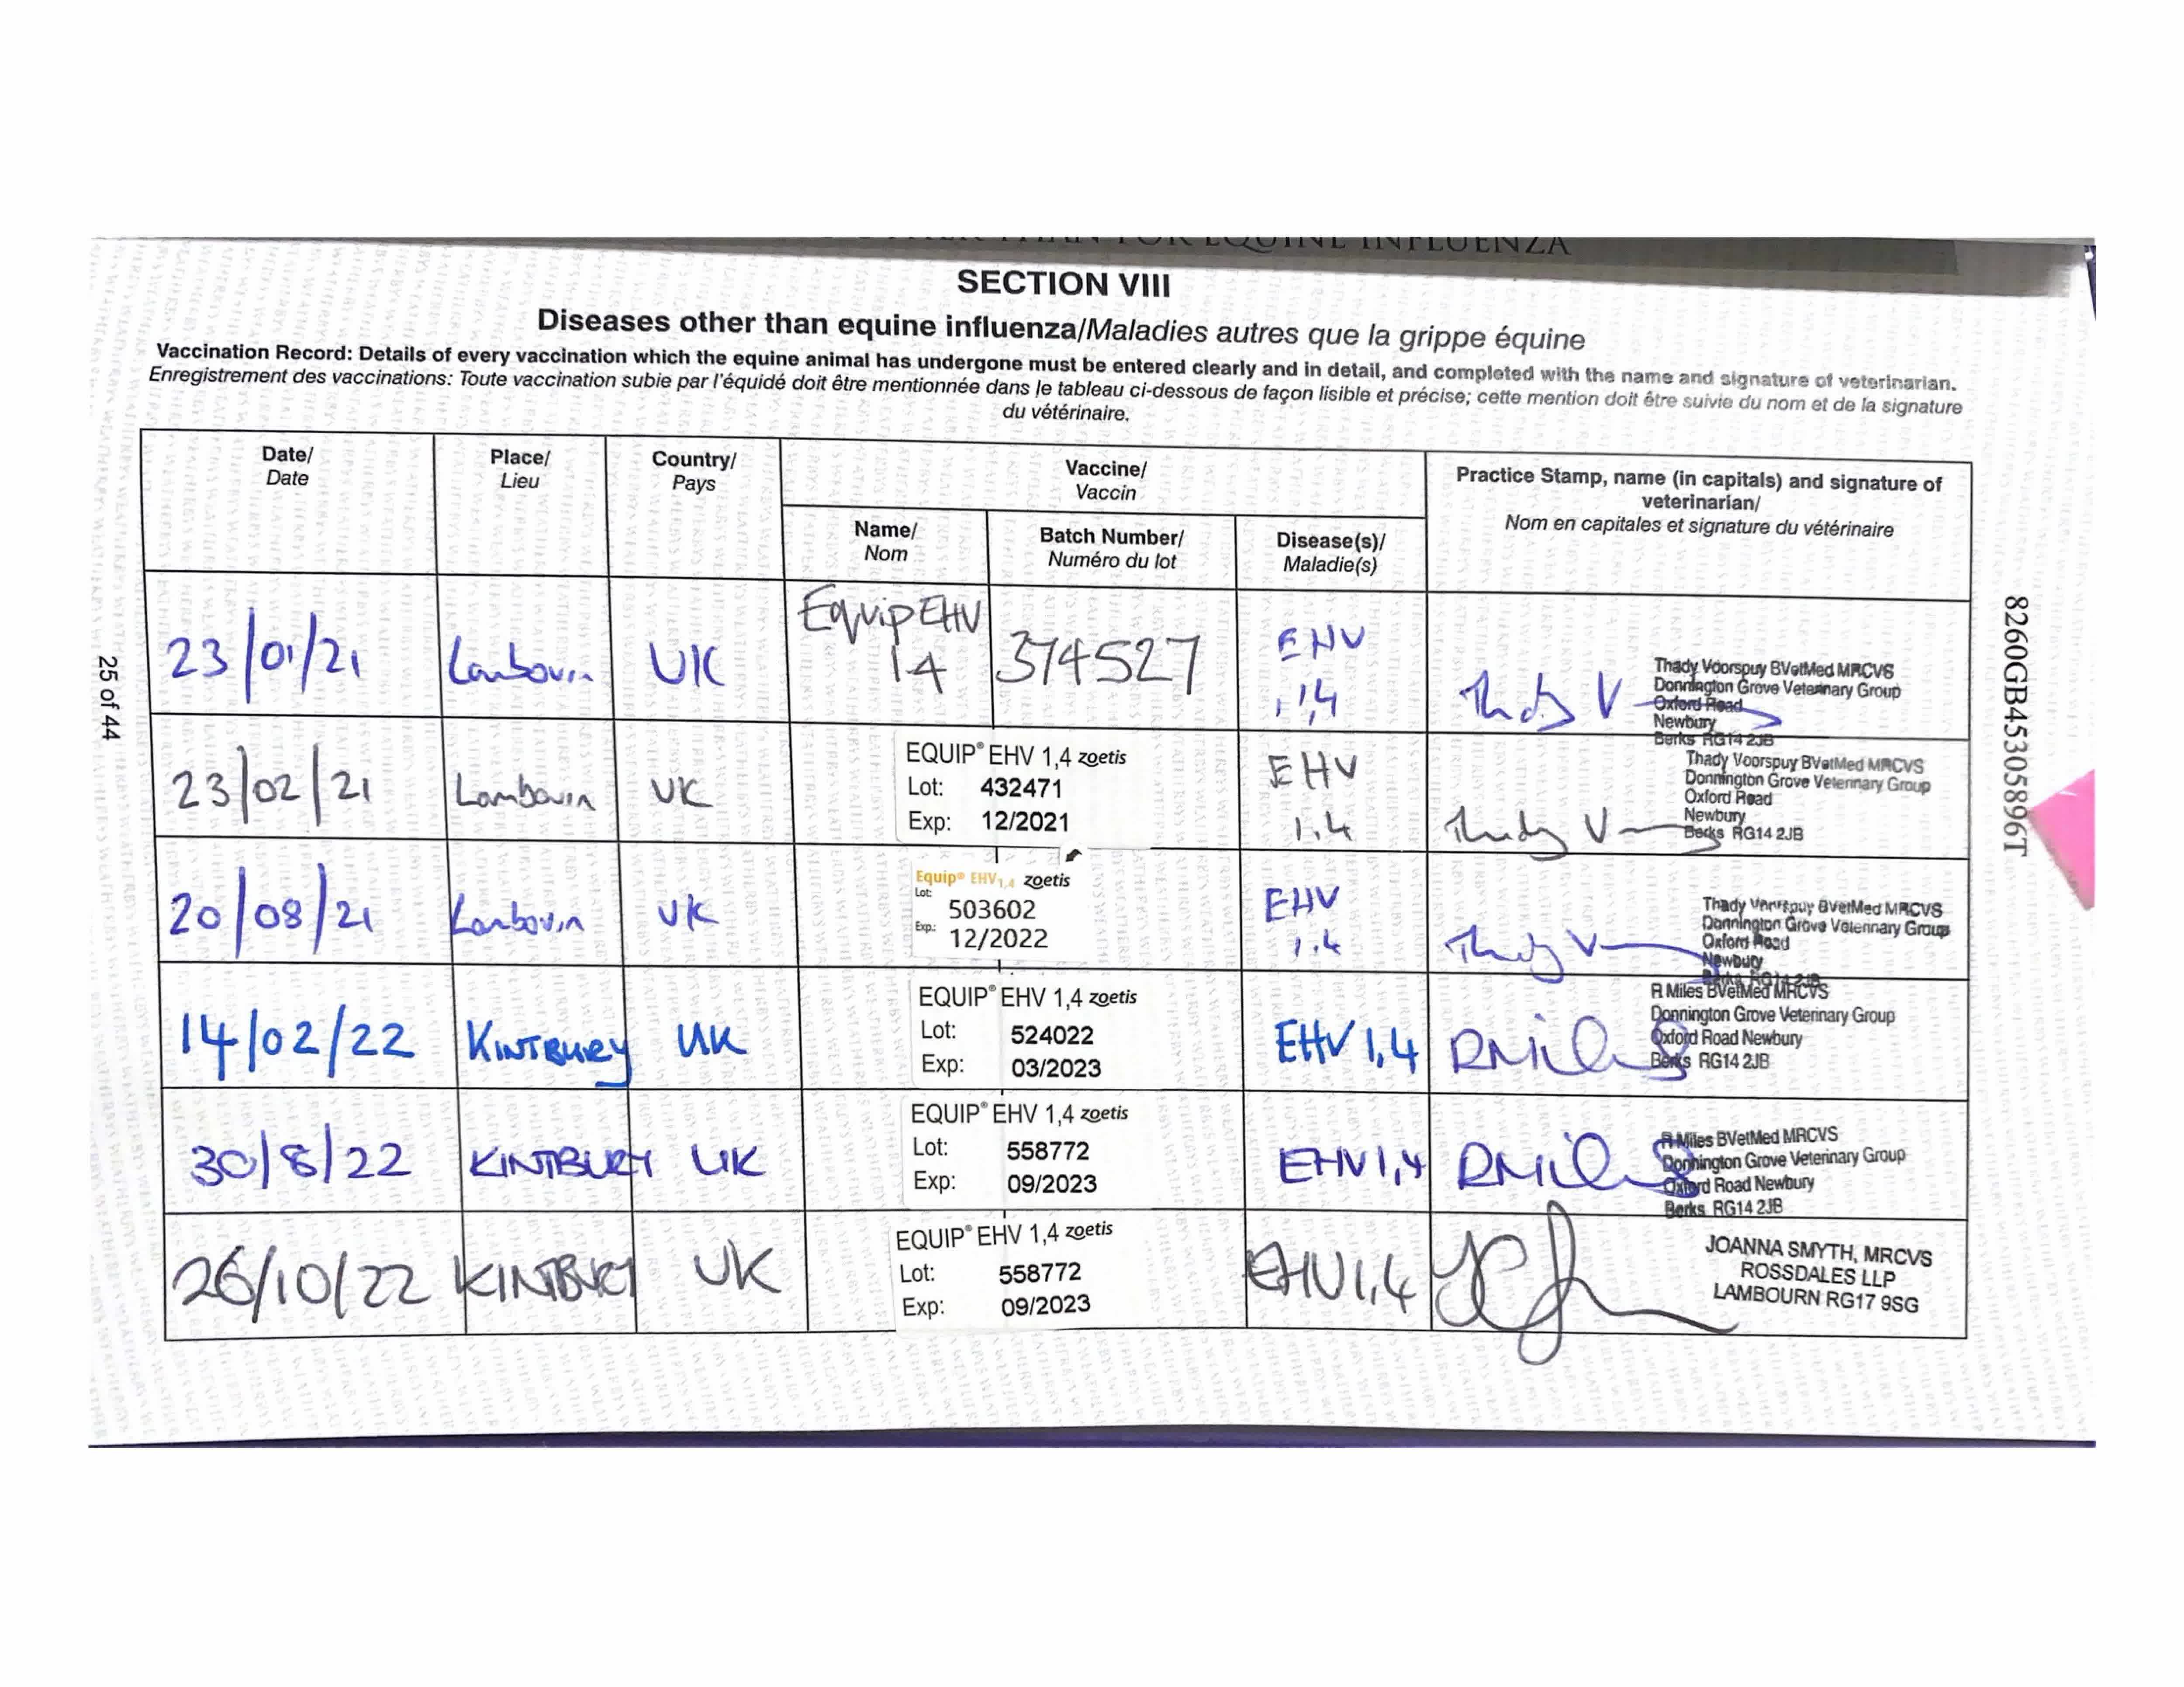 SECTION VIII
Diseases other than equine influenza/Maladies autres que la grippe équine
Vaccination Record: Details of every vaccination which the equine animal has undergone must be entered clearly and in detail, and completed with the name and signature of veterinarian.
Enregistrement des vaccinations: Toute vaccination subie par l'équidé doit être mentionnée dans le tableau ci-dessous de façon lisible et précise; cette mention doit être suivie du nom et de la signature
du vétérinaire.
Date/
Date
Place/
Lieu
Country/
Pays
Vaccine/
Vaccin
Name/
Nom
Batch Number/
Numéro du lot
Disease(s)/
Maladie(s)
Practice Stamp, name (in capitals) and signature of
veterinarian/
Nom en capitales et signature du vétérinaire
23/01/21
Lambourn
UK
Equip EHV
14
374527
EHV
1,4
Thady V
Thady Voorspuy BVetMed MRCVS
Donnington Grove Veterinary Group
Oxford Road
Newbury
Berks RG14 2JB
23/02/21
Lambourn
UK
EQUIP® EHV 1,4 zoetis
Lot: 432471
Exp: 12/2021
EHV
1.4
Thady V
Thady Voorspuy BVetMed MRCVS
Donnington Grove Veterinary Group
Oxford Road
Newbury
Berks RG14 2JB
20/08/21
Lambourn
UK
Equip® EHV1,4 zoetis
Lot:
503602
Exp.:
12/2022
EHV
1.4
Thady V
Thady Voorspuy BVetMed MRCVS
Donnington Grove Veterinary Group
Oxford Road
Newbury
Berks RG14 2JB
14/02/22
KINTBURY
UK
EQUIP® EHV 1,4 zoetis
Lot: 524022
Exp: 03/2023
EHV 1,4
RMiles
R Miles BVetMed MRCVS
Donnington Grove Veterinary Group
Oxford Road Newbury
Berks RG14 2JB
30/8/22
KINTBURY
UK
EQUIP® EHV 1,4 zoetis
Lot: 558772
Exp: 09/2023
EHV 1,4
RMiles
R Miles BVetMed MRCVS
Donnington Grove Veterinary Group
Oxford Road Newbury
Berks RG14 2JB
26/10/22
KINTBURY
UK
EQUIP® EHV 1,4 zoetis
Lot: 558772
Exp: 09/2023
EHV 1,4
JOANNA SMYTH, MRCVS
ROSSDALES LLP
LAMBOURN RG17 9SG
25 of 44
8260GB45305896T